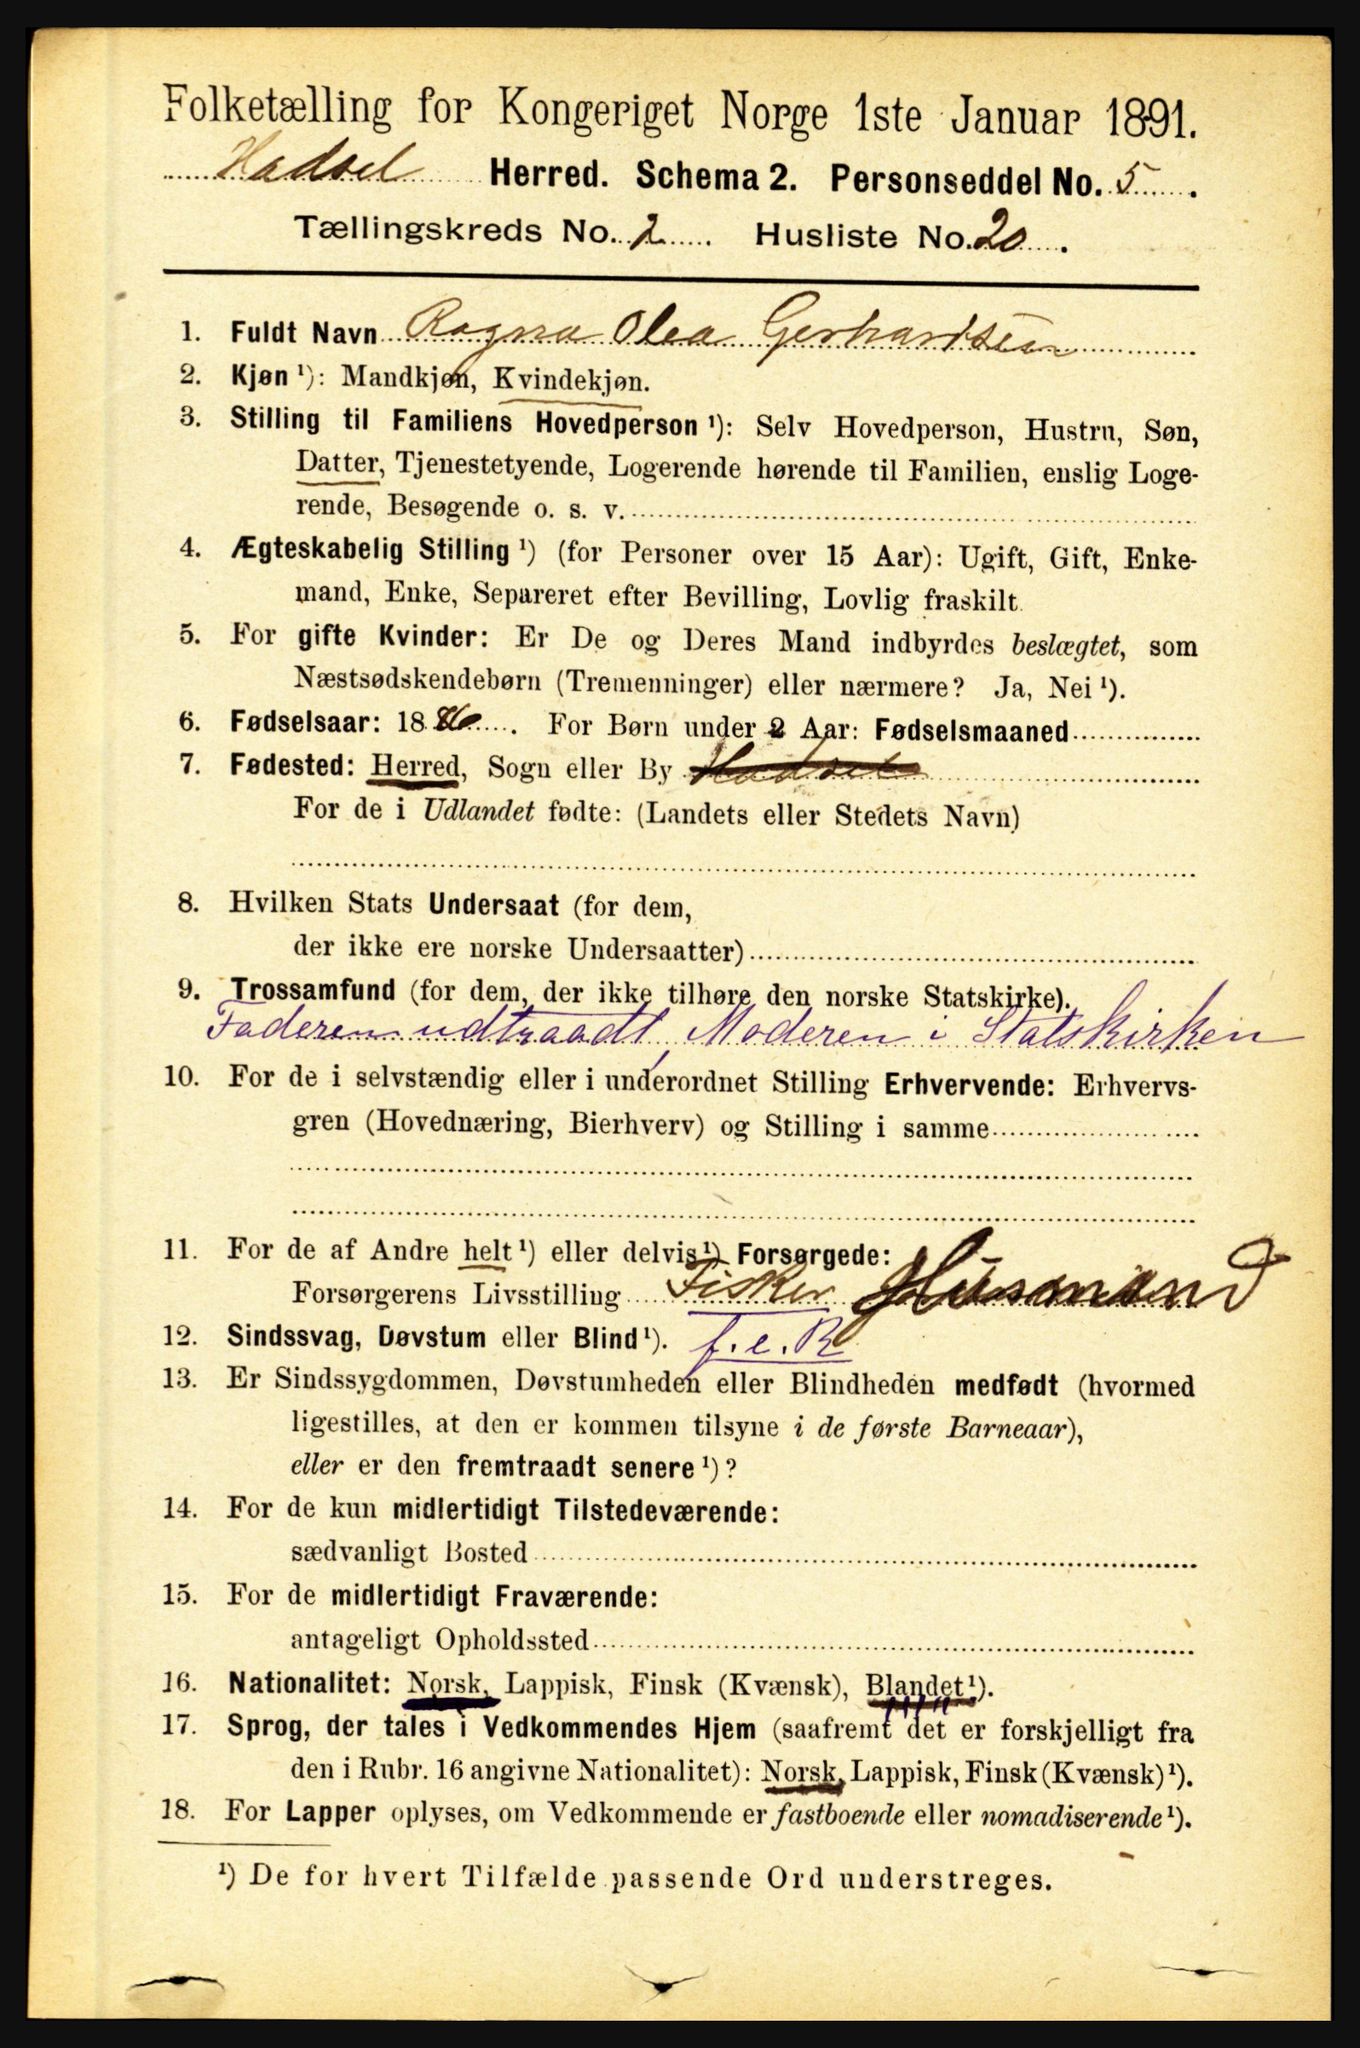 Folketælling for Kongeriget Norge 1ste Januar 1891.
Hadsel Herred. Schema 2. Personseddel No. 5.
Tællingskreds No. 2 Husliste No. 20.
1. Fuldt Navn Ragna Olea Gerhardsen
2. Kjøn ¹): Mandkjøn, Kvindekjøn.
3. Stilling til Familiens Hovedperson ¹): Selv Hovedperson, Hustru, Søn,
Datter, Tjenestetyende, Logerende hørende til Familien, enslig Loge-
rende, Besøgende o. s. v.
4. Ægteskabelig Stilling ¹) (for Personer over 15 Aar): Ugift, Gift, Enke-
mand, Enke, Separeret efter Bevilling, Lovlig fraskilt.
5. For gifte Kvinder: Er De og Deres Mand indbyrdes beslægtet, som
Næstsødskendebørn (Tremenninger) eller nærmere? Ja, Nei ¹).
6. Fødselsaar: 1886. For Børn under 2 Aar: Fødselsmaaned
7. Fødested: Herred, Sogn eller By Hadsel
For de i Udlandet fødte: (Landets eller Stedets Navn)
8. Hvilken Stats Undersaat (for dem,
der ikke ere norske Undersaatter)
9. Trossamfund (for dem, der ikke tilhøre den norske Statskirke).
Faderen udtraadt, Moderen i Statskirken
10. For de i selvstændig eller i underordnet Stilling Erhvervende: Erhvervs-
gren (Hovednæring, Bierhverv) og Stilling i samme
11. For de af Andre helt ¹) eller delvis ¹) Forsørgede:
Forsørgerens Livsstilling Fisker Husmand
12. Sindssvag, Døvstum eller Blind ¹). f. e. R
13. Er Sindssygdommen, Døvstumheden eller Blindheden medfødt (hvormed
ligestilles, at den er kommen tilsyne i de første Barneaar),
eller er den fremtraadt senere ¹)?
14. For de kun midlertidigt Tilstedeværende:
sædvanligt Bosted
15. For de midlertidigt Fraværende:
antageligt Opholdssted
16. Nationalitet: Norsk, Lappisk, Finsk (Kvænsk), Blandet ¹).
17. Sprog, der tales i Vedkommendes Hjem (saafremt det er forskjelligt fra
den i Rubr. 16 angivne Nationalitet): Norsk, Lappisk, Finsk (Kvænsk) ¹).
18. For Lapper oplyses, om Vedkommende er fastboende eller nomadiserende ¹).
¹) De for hvert Tilfælde passende Ord understreges.